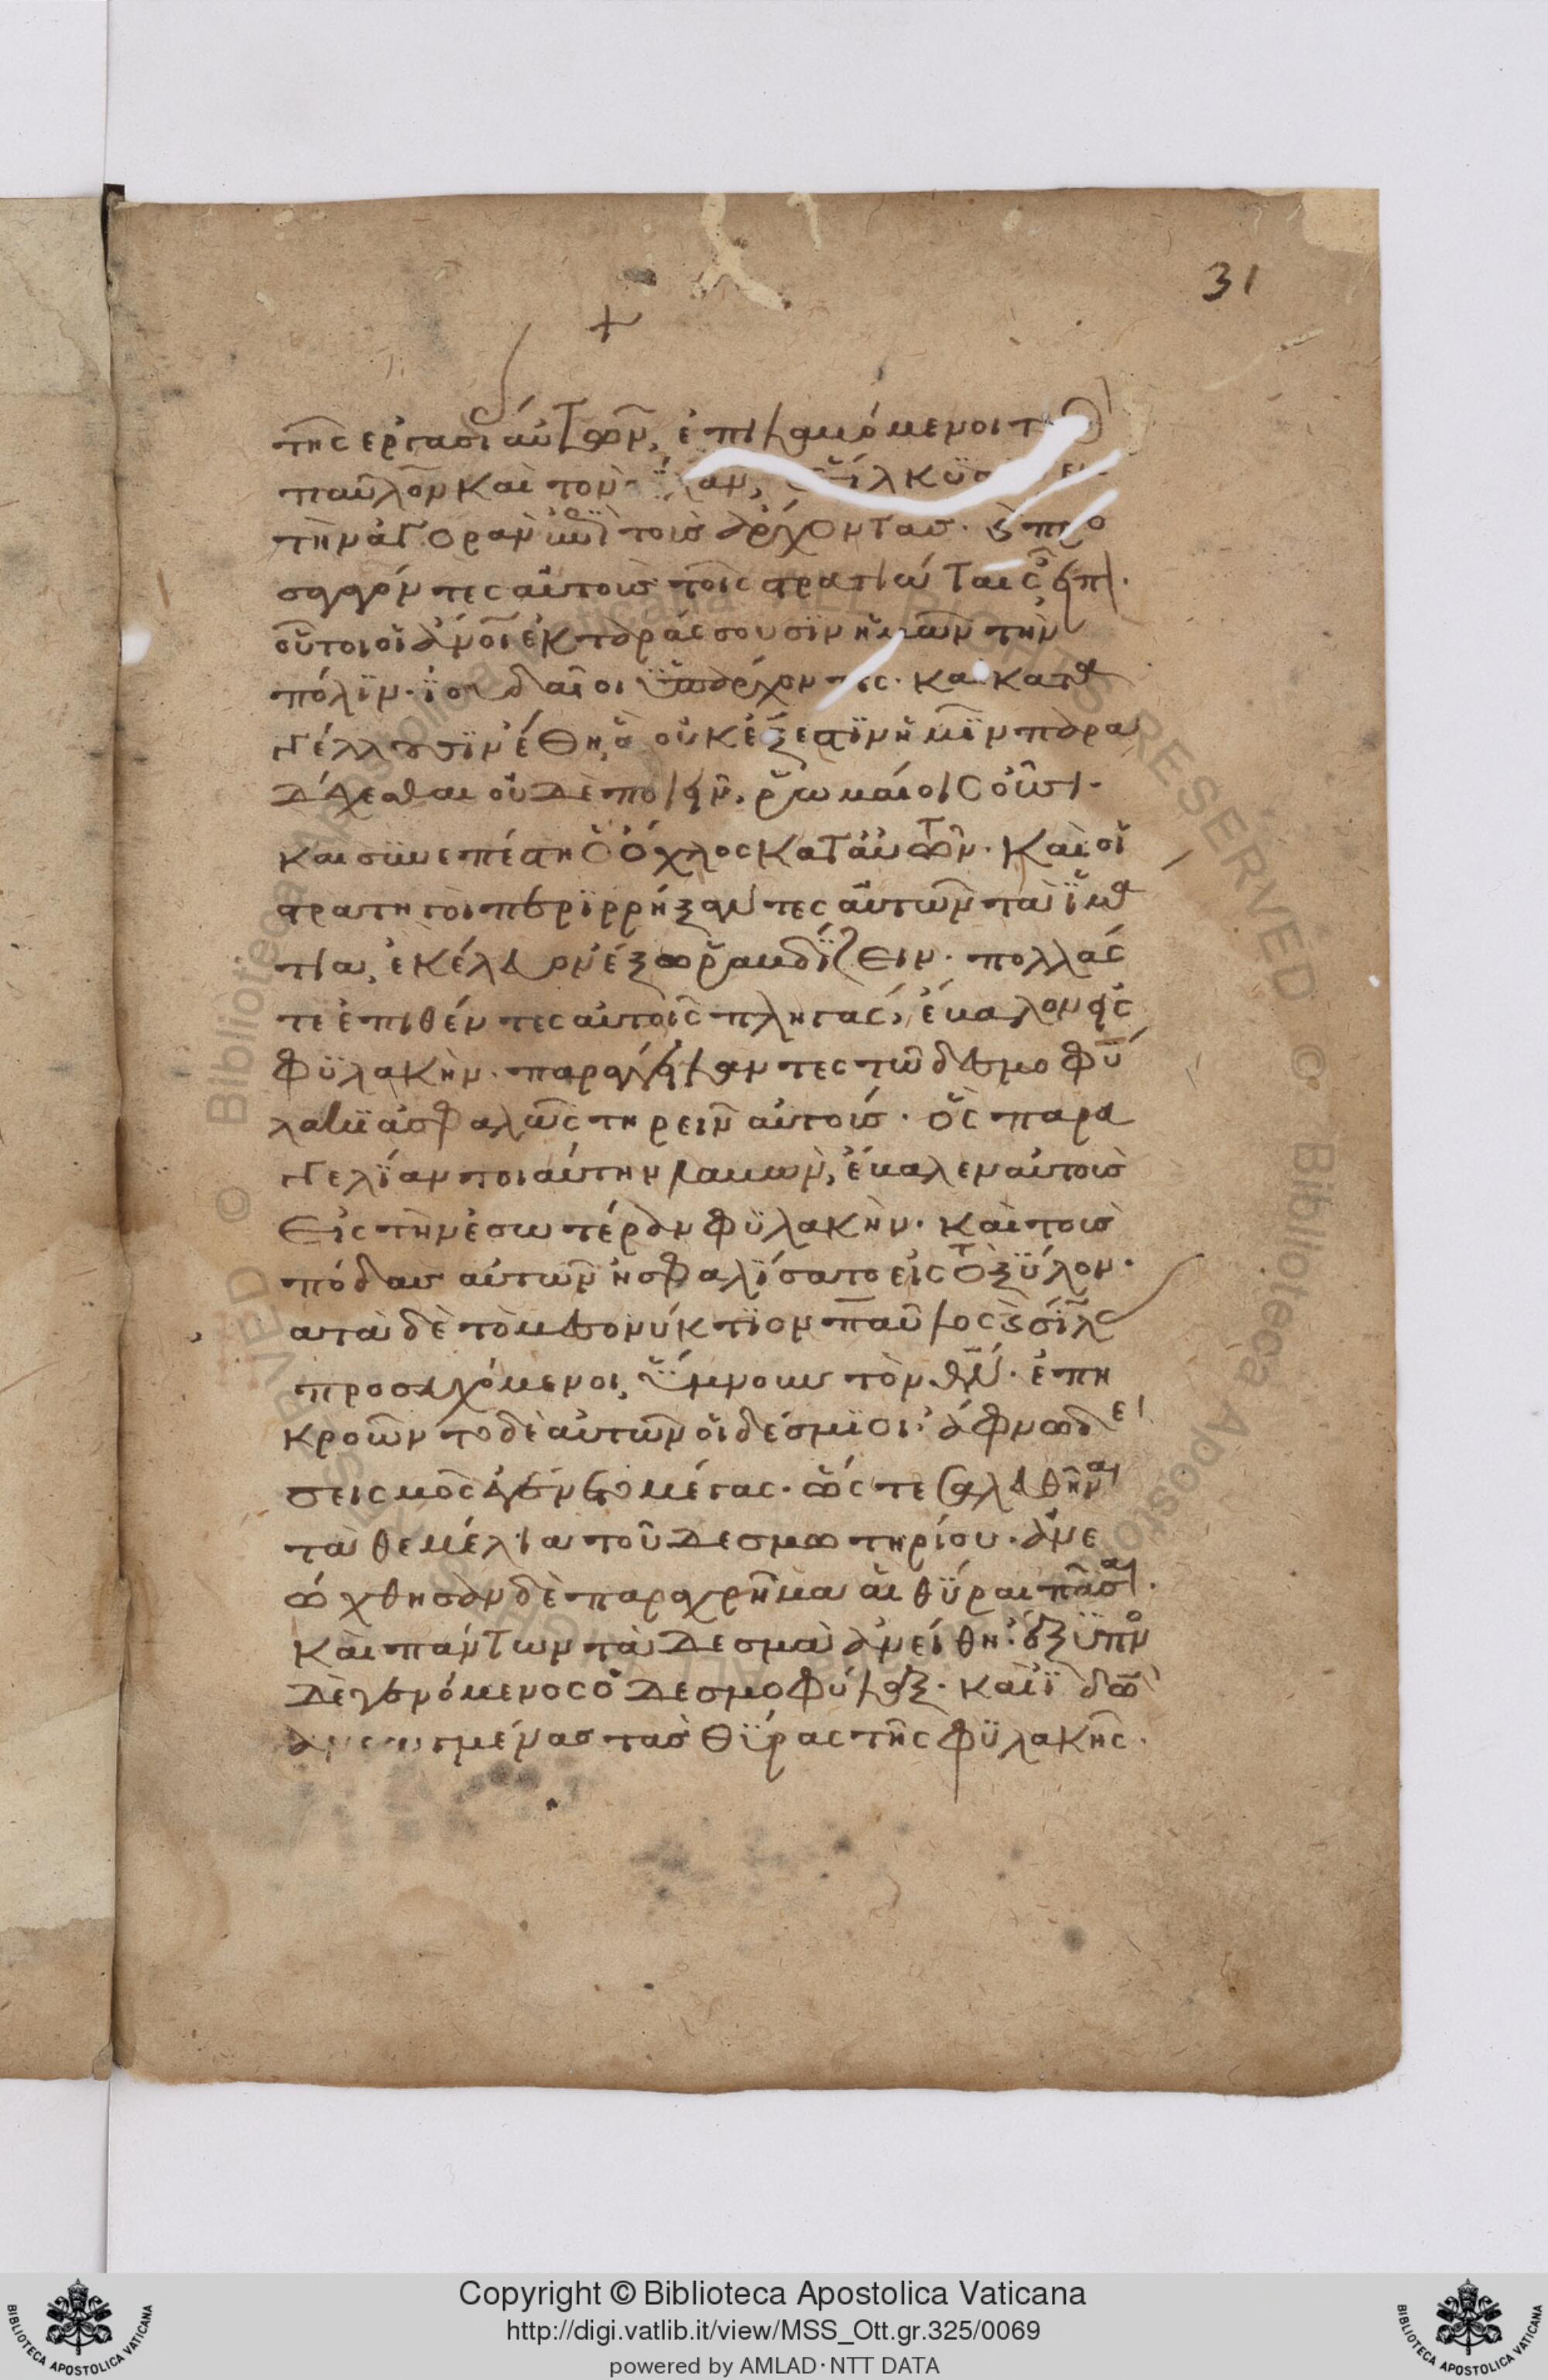 31
+
τῆς ἐργασί αὐτῶν, ἐπιλαβόμενοι τ
παῦλον καὶ τὸν σίλαν, εἵλκϋσ
τὴν ἀγορὰν ἐπὶ τοὺς ἄρχοντας. ϗ προ
σαγαγόντες αὐτοὺς τοῖς στρατιώταις
οὗτοι οἱ ἄνοι ἐκταράσσουσϊν ἡμῶν τὴν
πόλϊν. ϊουδαῖοι ϋπάρχοντες. καὶ κατα
γέλλουσϊν ἔθη, ἃ οὐκ ἔξεστϊν ἡμῖν παρα
δέχεσθαι οὐδὲ ποιεῖν, ῥωμαίοις οὖσι.
καὶ σϋνεπέστη ὁ ὄχλος κατ αὐτῶν. καὶ οἱ
στρατηγοὶ περϊρρήξαντες αὐτῶν τὰ ϊμα
τια, ἐκέλευον ἐξω ῥαβδΐζειν. πολλάς
τε ἐπιθέντες αὐτοῖς πληγάς, ἔβαλον εἰς
φϋλακὴν. παραγγείλαντες τῶ δεσμοφύ
λακϊ ἀσφαλῶς τηρεῖν αὐτούς. ὃς παρα
γελΐαν τοιαύτην λαβὼν, ἔβαλεν αὐτοὺς
εἰς τὴν ἐσωτέραν φϋλακὴν. καὶ τοὺς
πόδας αὐτῶν ἠσφαλΐσατο εἰς τὸ ξύλον.
ατὰ δὲ τὸ μεσονύκτϊον παῦλος ϗ σίλας
προσευχόμενοι, ὕμνουν τὸν θν. ἐπη
κροῶντο δὲ αὐτῶν οἱ δέσμϊοι. ἄφνω δὲ
σεισμὸς ἐγένετο μέγας. ὥς τε σαλευθῆναι
τὰ θεμέλια τοῦ δεσμωτηρίου. ἀνε
ώχθησαν δὲ παραχρῆμα αἱ θύραι πᾶσαι.
καὶ πάντων τὰ δεσμὰ ἀνείθη. ἔξϋπνος
δὲ γενόμενος ὁ δεσμοφύλαξ. καὶ ϊδὼν
ἀνεωγμένας τὰς θύρας τῆς φϋλακῆς.
Copyright © Biblioteca Apostolica Vaticana
http://digi.vatlib.it/view/MSS_Ott.gr.325/0069
powered by AMLAD·NTT DATA
BIBLIOTECA APOSTOLICA VATICANA
BIBLIOTECA APOSTOLICA VATICANA